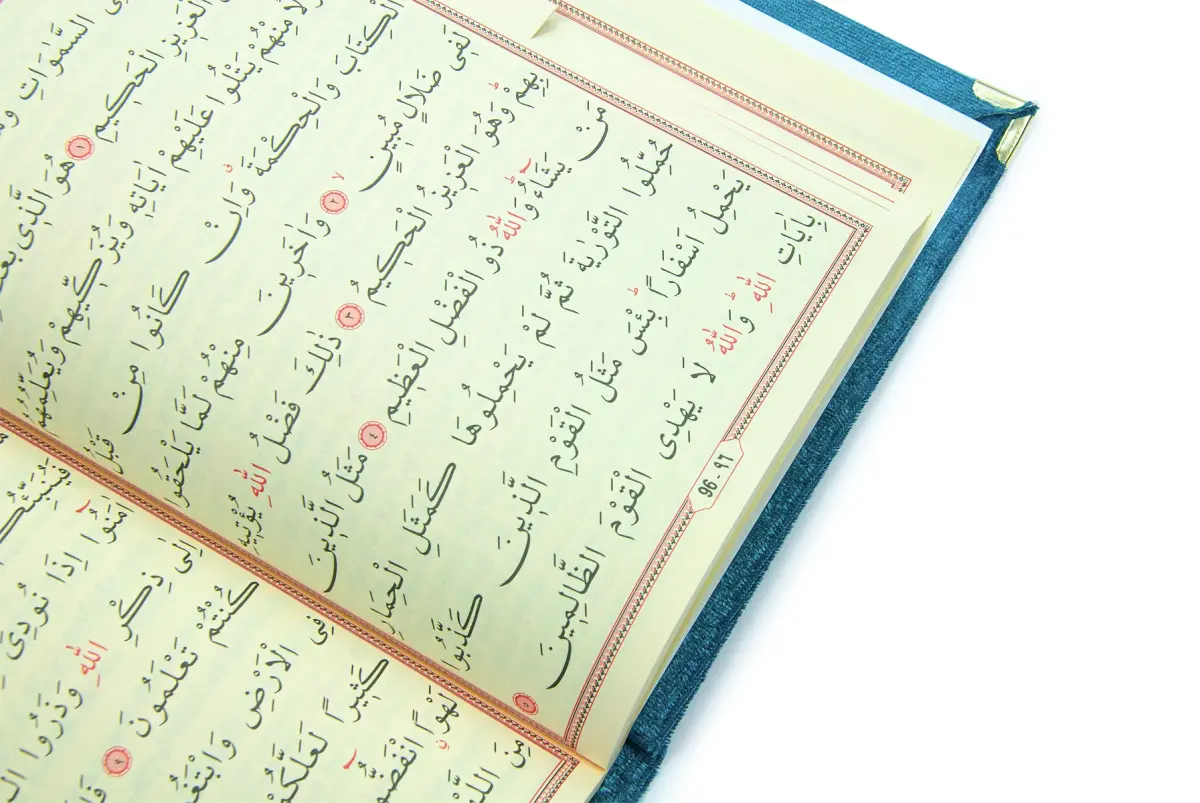 السَّمٰوَاتِ
الْعَزِيزِ الْحَكِيمِ ١ هُوَ الَّذِى بَعَثَ
مِنْهُمْ يَتْلُوا عَلَيْهِمْ اٰيَاتِهِ وَيُزَكِّيهِمْ وَيُعَلِّمُهُمُ
الْكِتَابَ وَالْحِكْمَةَ وَاِنْ كَانُوا مِنْ قَبْلُ
لَفِى ضَلَالٍ مُبِينٍ ٢ وَاٰخَرِينَ مِنْهُمْ لَمَّا يَلْحَقُوا
بِهِمْ وَهُوَ الْعَزِيزُ الْحَكِيمُ ٣ ذٰلِكَ فَضْلُ اللّٰهِ يُؤْتِيهِ
مَنْ يَشَاءُ وَاللّٰهُ ذُو الْفَضْلِ الْعَظِيمِ ٤ مَثَلُ الَّذِينَ
حُمِّلُوا التَّوْرٰيةَ ثُمَّ لَمْ يَحْمِلُوهَا كَمَثَلِ الْحِمَارِ
يَحْمِلُ اَسْفَارًا بِئْسَ مَثَلُ الْقَوْمِ الَّذِينَ كَذَّبُوا
بِاٰيَاتِ اللّٰهِ وَاللّٰهُ لَا يَهْدِى الْقَوْمَ الظَّالِمِينَ ٥
96 - ٩٦
فَيُنَبِّئُكُمْ
اٰمَنُوا اِذَا نُودِىَ
اِلٰى ذِكْرِ اللّٰهِ وَذَرُوا
كُنْتُمْ تَعْلَمُونَ ٩
فِى الْاَرْضِ
كَثِيرًا لَعَلَّكُمْ
لَهْوًا
مِنَ